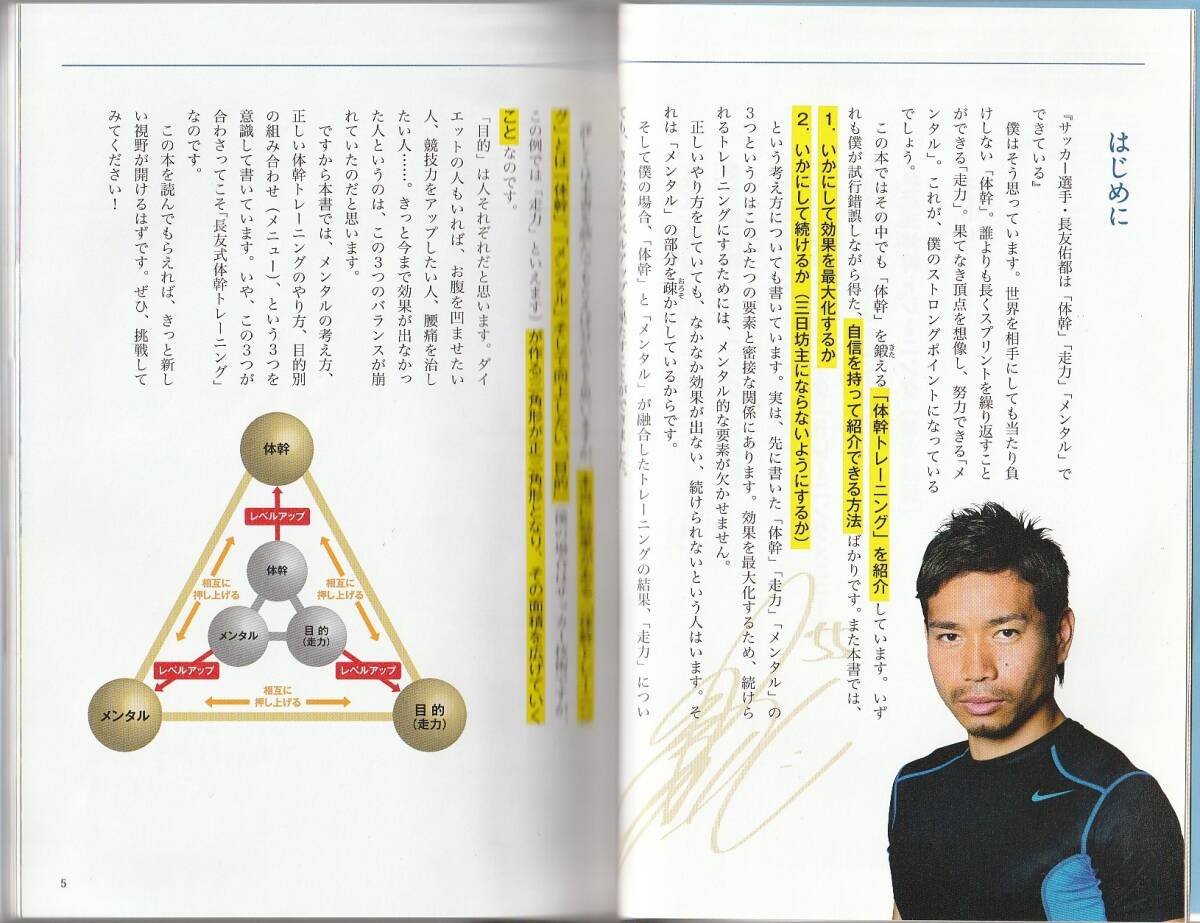 はじめに
『サッカー選手・長友佑都は「体幹」「走力」「メンタル」で
できている』
僕はそう思っています。世界を相手にしても当たり負
けしない「体幹」。誰よりも長くスプリントを繰り返すこと
ができる「走力」。果てなき頂点を想像し、努力できる「メ
ンタル」。これが、僕のストロングポイントになっている
でしょう。
この本ではその中でも「体幹」を鍛える「体幹トレーニング」を紹介しています。いず
れも僕が試行錯誤しながら得た、自信を持って紹介できる方法ばかりです。また本書では、
1．いかにして効果を最大化するか
2．いかにして続けるか（三日坊主にならないようにするか）
という考え方についても書いています。実は、先に書いた「体幹」「走力」「メンタル」の
3つというのはこのふたつの要素と密接な関係にあります。効果を最大化するため、続けら
れるトレーニングにするためには、メンタル的な要素が欠かせません。
正しいやり方をしていても、なかなか効果が出ない、続けられないという人はいます。そ
れは「メンタル」の部分を疎かにしているからです。
そして僕の場合、「体幹」と「メンタル」が融合したトレーニングの結果、「走力」につい
グ」とは「体幹」、「メンタル」そして向上したい「目的」
この例では「走力」といえます）が作る三角形が正三角形となり、その面積を広げていく
ことなのです。
「目的」は人それぞれだと思います。ダイ
エットの人もいれば、お腹を凹ませたい
人、競技力をアップしたい人、腰痛を治し
たい人……。きっと今まで効果が出なかっ
た人というのは、この3つのバランスが崩
れていたのだと思います。
ですから本書では、メンタルの考え方、
正しい体幹トレーニングのやり方、目的別
の組み合わせ（メニュー）、という3つを
意識して書いています。いや、この3つが
合わさってこそ「長友式体幹トレーニング」
なのです。
この本を読んでもらえれば、きっと新し
い視野が開けるはずです。ぜひ、挑戦して
みてください！
体幹
レベルアップ
体幹
相互に
押し上げる
相互に
押し上げる
メンタル
目的
（走力）
レベルアップ
レベルアップ
メンタル
相互に
押し上げる
目的
（走力）
5